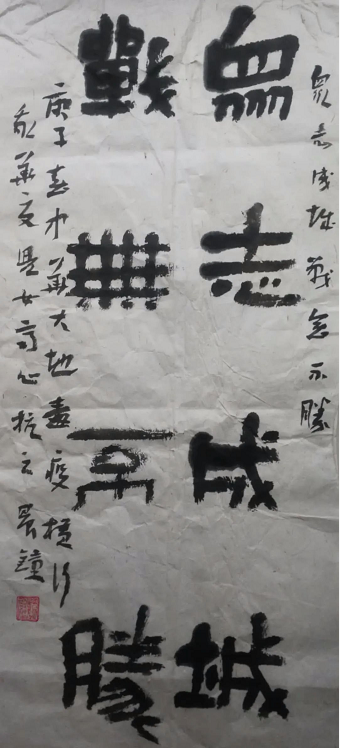 眾志成城戰無不勝
眾志成城
戰無不勝
庚子春中華大地疫橫行
華夏兒女齊心抗之 鐘